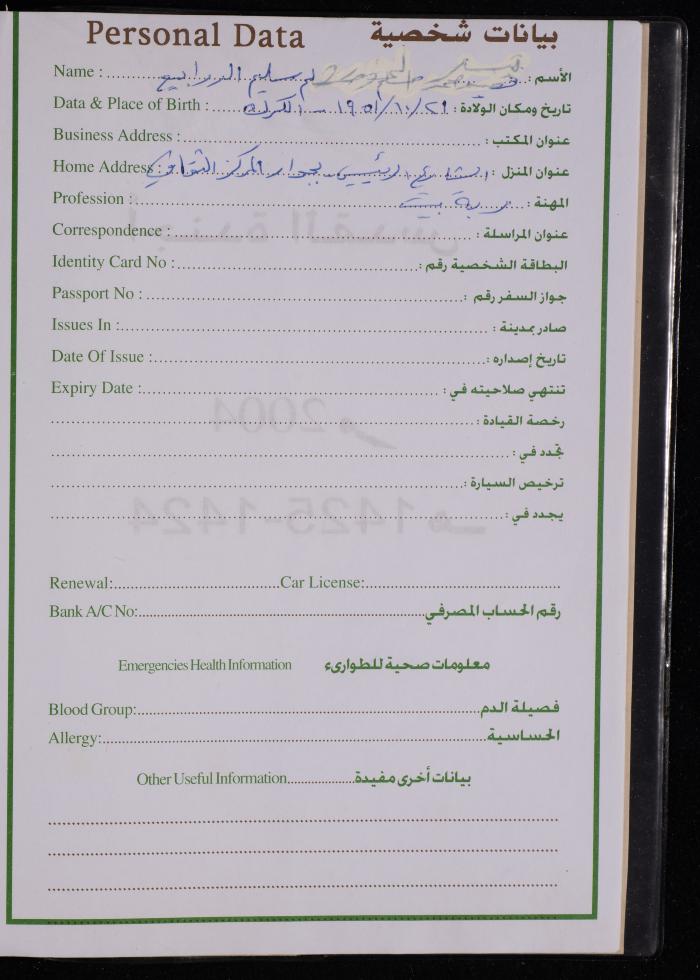 Personal Data بيانات شخصية
Name : سليم الأسم :
Data & Place of Birth : ٢٩/١٠/١٩٥١ - الكرك تاريخ ومكان الولادة :
Business Address : عنوان المكتب :
Home Address : الشارع الرئيسي بجوار المركز الثقافي عنوان المنزل :
Profession : ربة بيت المهنة :
Correspondence : عنوان المراسلة :
Identity Card No : البطاقة الشخصية رقم :
Passport No : جواز السفر رقم :
Issues In : صادر بمدينة :
Date Of Issue : تاريخ إصداره :
Expiry Date : تنتهي صلاحيته في :
رخصة القيادة :
تجدد في :
ترخيص السيارة :
يجدد في :
Renewal: Car License:
Bank A/C No: رقم الحساب المصرفي
Emergencies Health Information معلومات صحية للطوارىء
Blood Group: فصيلة الدم
Allergy: الحساسية
Other Useful Information بيانات أخرى مفيدة